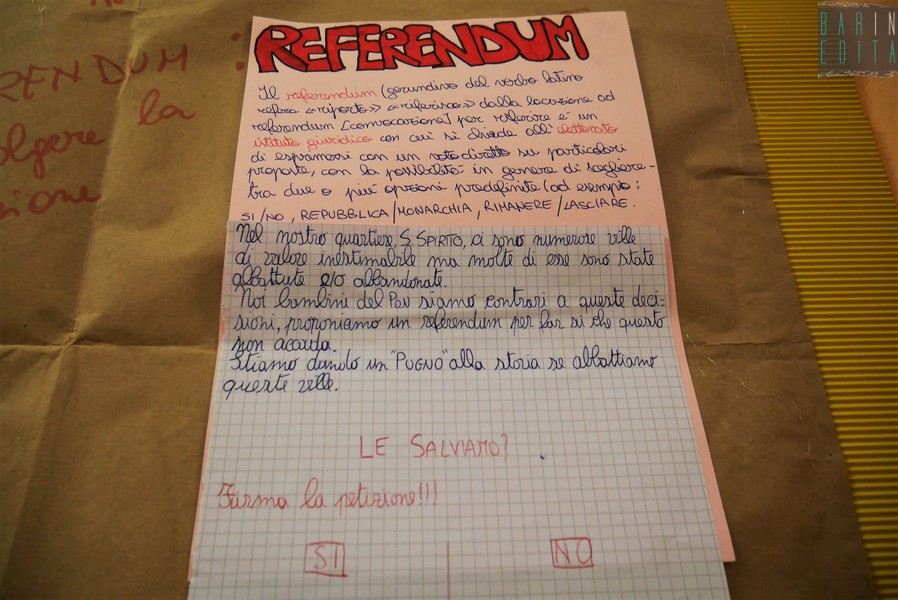 RENDUM :
olgere la
REFERENDUM
Il referendum (gerundivo del verbo latino
refero «riporto» «riferisco» dalla locuzione ad
referendum [convocazione] per riferire è un
istituto giuridico con cui si chiede all' elettorato
di esprimersi con un voto diretto su particolari
proposte, con la possibilità in genere di scegliere
tra due o più opzioni predefinite (ad esempio:
SI/NO, REPUBBLICA/MONARCHIA, RIMANERE/LASCIARE.
Nel nostro quartiere, S. SPIRITO, ci sono numerose ville
di valore inestimabile ma molte di esse sono state
abbattute e/o abbandonate.
Noi bambini del Pon siamo contrari a queste deci-
sioni, proponiamo un referendum per far sì che questo
non accada.
Stiamo dando un "PUGNO" alla storia se abbattiamo
queste ville.
LE SALVIAMO?
Firma la petizione!!!
SI
NO
BARIN
EDITA